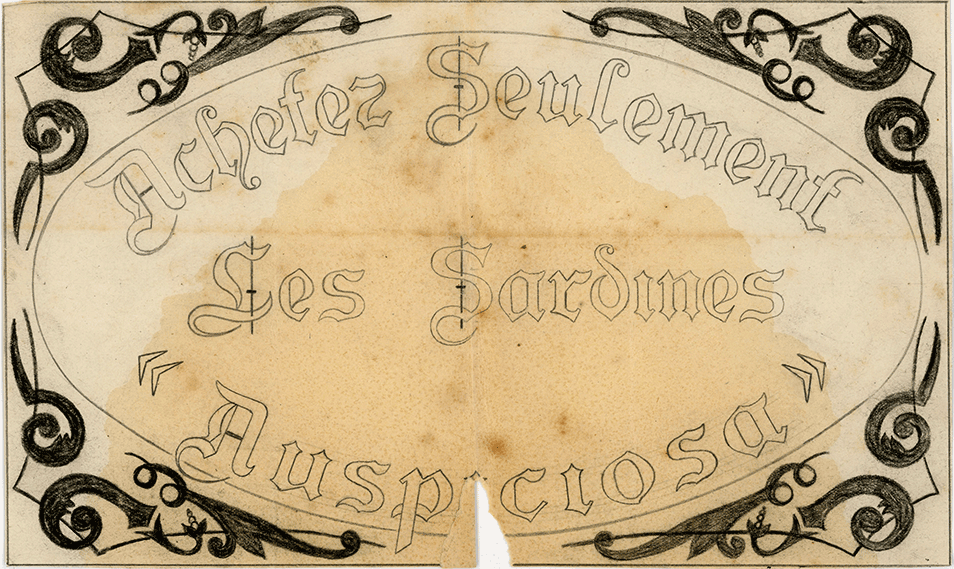 Achetez Seulement
Les Sardines
« Auspiciosa »